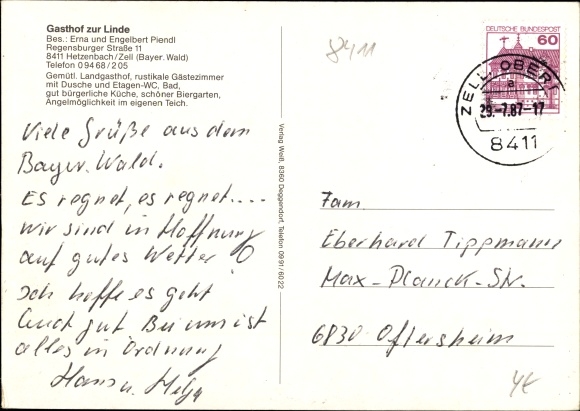 Gasthof zur Linde
Bes.: Erna und Engelbert Piendl
Regensburger Straße 11
8411 Hetzenbach/Zell (Bayer. Wald)
Telefon 0 94 68 / 2 05
Gemütl. Landgasthof, rustikale Gästezimmer
mit Dusche und Etagen-WC, Bad,
gut bürgerliche Küche, schöner Biergarten,
Angelmöglichkeit im eigenen Teich.
8411
DEUTSCHE BUNDESPOST
60
ZELL, OBER
a
29.-7.87-17
8411
Viele Grüße aus dem
Bayer. Wald.
Es regnet, es regnet....
wir sind in Hoffnung
auf gutes Wetter
Ich hoffe es geht
Euch gut. Bei uns ist
alles in Ordnung
Hans u. Helga
Verlag Weiß, 8360 Deggendorf, Telefon 0991/6022
Fam.
Eberhard Tippmann
Max-Planck-Str.
6830 Oftersheim